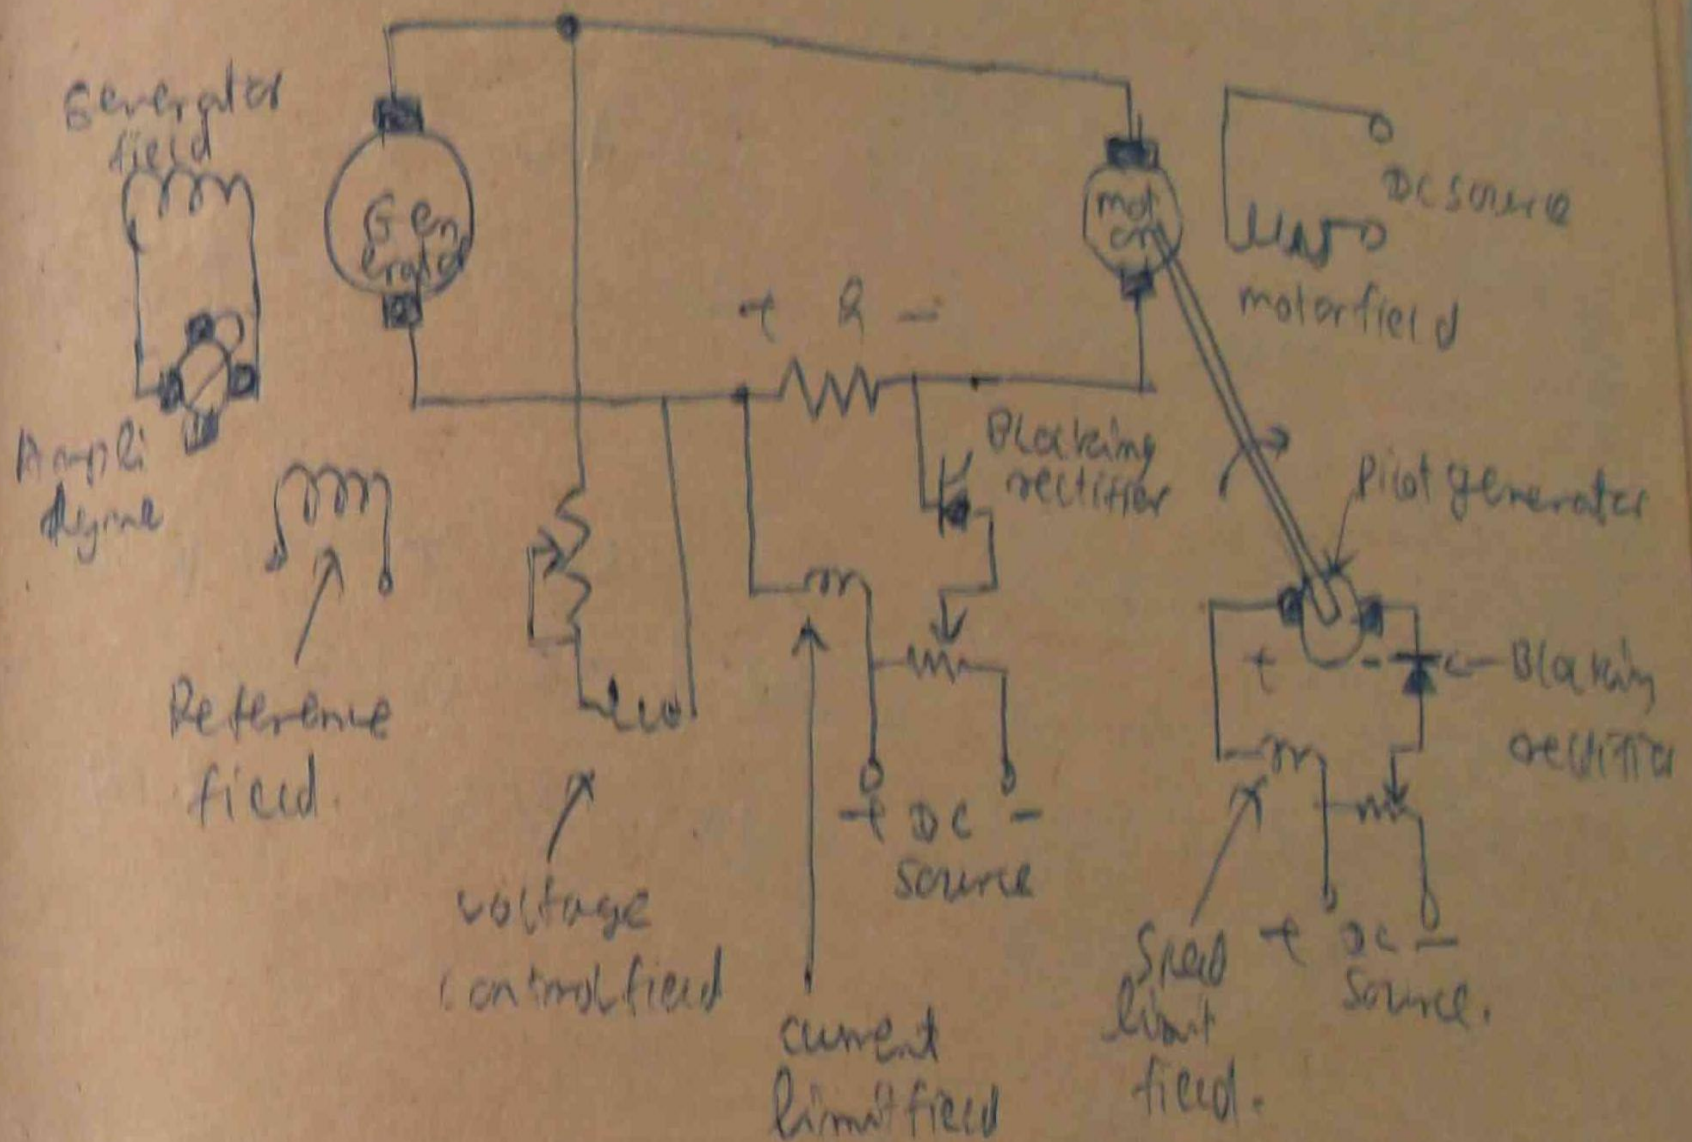 Generator
field
Gen
erator
mot
or
DC source
motorfield
+ R -
Blocking
rectifier
Ampli
dyne
Pilot generator
Reference
field.
+ -
Blocking
rectifier
+ DC -
source
voltage
control field
current
limit field
Speed
limit
field.
+ DC -
Source.